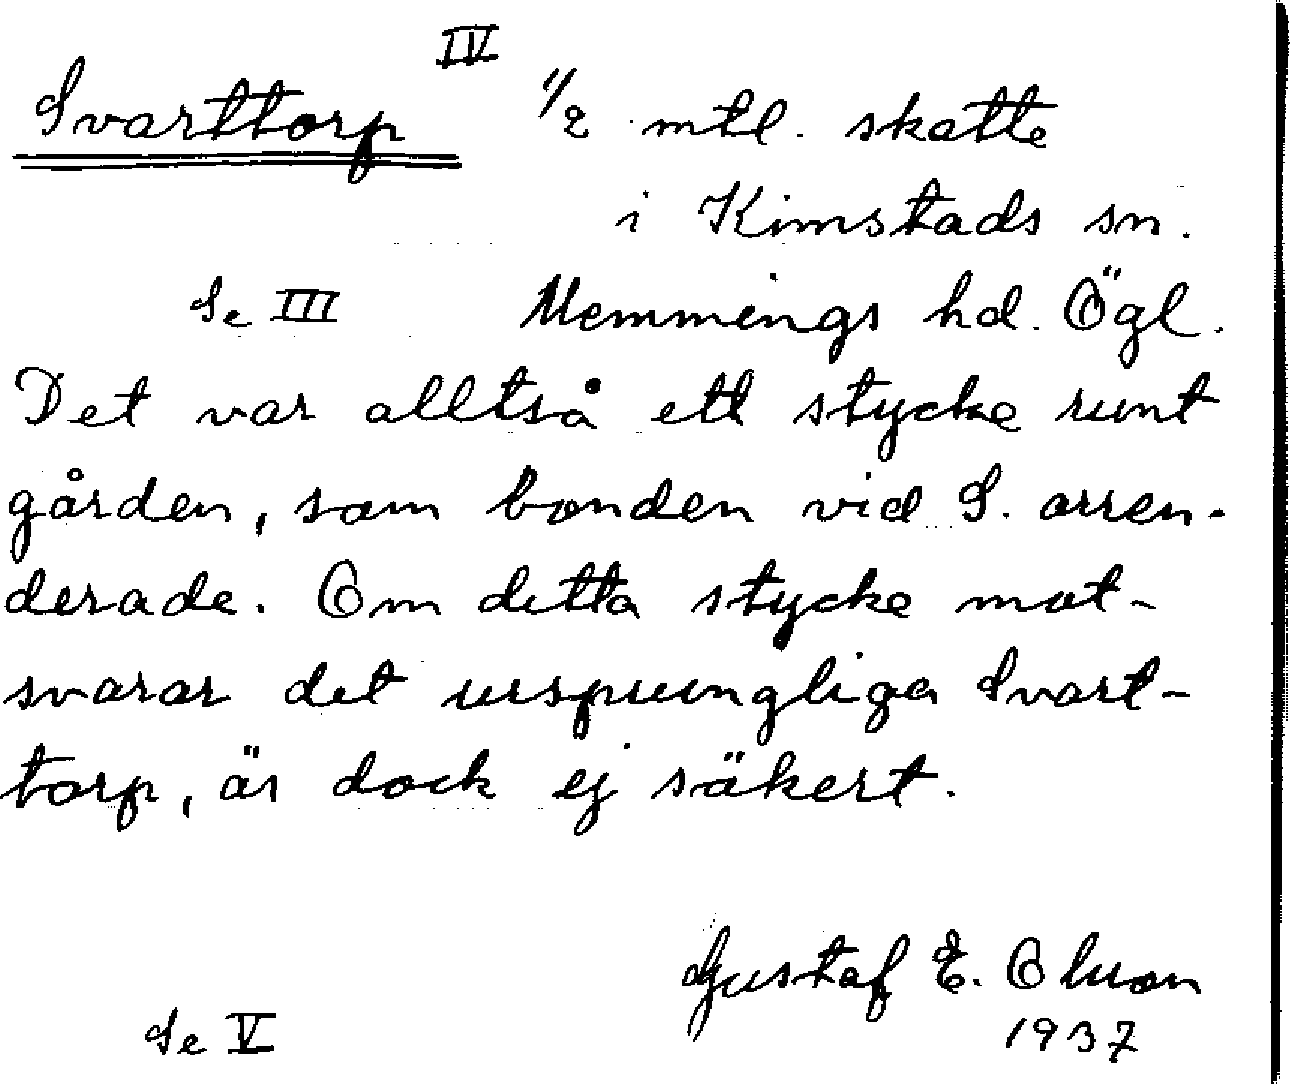 IV
Svarttorp 1/2 mtl. skatte
i Kimstads sn.
Se III Memmings hd. Ögl.
Det var alltså ett stycke runt
gården, som bonden vid S. arren-
derade. Om detta stycke mot-
svarar det ursprungliga Svart-
torp, är dock ej säkert.
Gustaf E. Olsson
Se V 1937